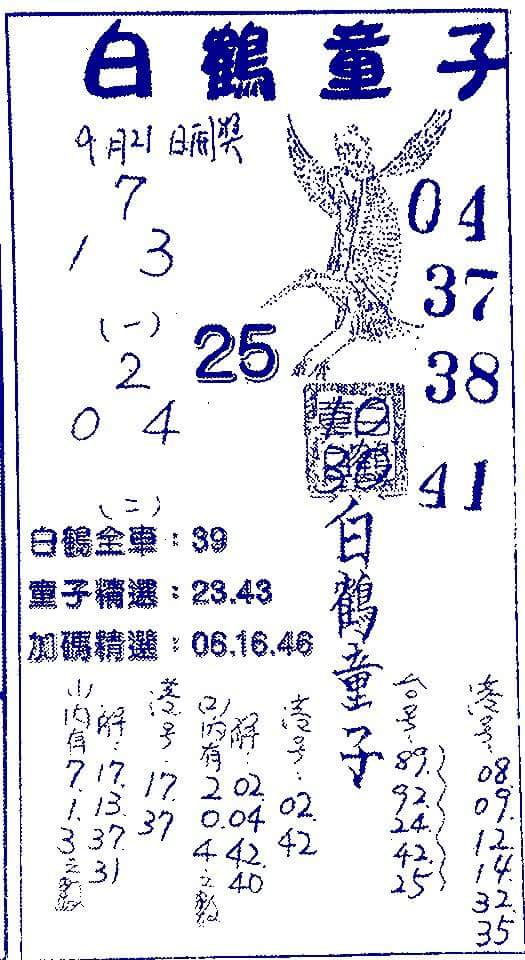 白鶴童子
9月21日開獎
7
1 3
(一)
2
0 4
(二)
25
04
37
38
41
白鶴童子
白鶴全車：39
童子精選：23.43
加碼精選：06.16.46
(一)內有7.1.3之數
解：17.13.37.31
港号：17.37
(二)內有2.0.4之數
解：02.04.42.40
港号：02.42
台号：89.92.24.42.25
港号：08.09.12.14.32.35